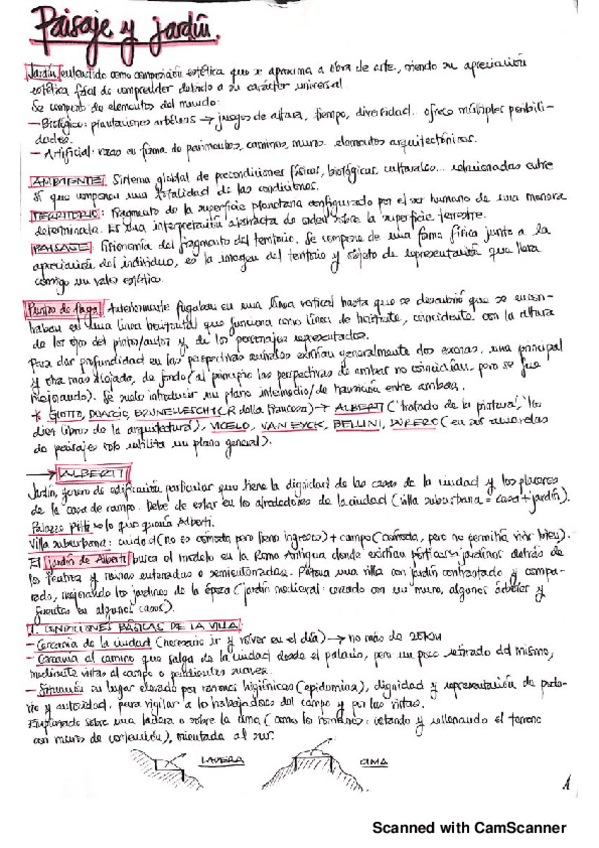 Paisaje y jardín.
Jardín entendido como composición estética que se aproxima a obra de arte, siendo su apreciación
estética fácil de comprender debido a su carácter universal
Se compone de elementos del mundo:
- Biológico: plantaciones arbóreas → juegos de altura, tiempo, diversidad... ofrece múltiples posibili-
dades.
- Artificial: vasos en forma de pavimentos, caminos, muros... elementos arquitectónicos.
AMBIENTE: Sistema global de precondiciones físicas, biológicas, culturales... relacionadas entre
sí que componen una totalidad de las condiciones.
TERRITORIO: Fragmento de la superficie planetaria configurado por el ser humano de una manera
determinada. Es una interpretación abstracta de orden sobre la superficie terrestre.
PAISAJE: Fisionomía del fragmento del territorio. Se compone de una forma física junto a la
apreciación del individuo, es la imagen del territorio y objeto de representación que lleva
consigo un valor estético.
Puntos de fuga: Anteriormente fugaban en una línea vertical hasta que se descubrió que se encon-
traban en una línea horizontal que funciona como línea de horizonte, coincidente con la altura
de los ojos del pintor/autor y de los personajes representados.
Para dar profundidad en las perspectivas murales existían generalmente dos escenas, una principal
y otra más alejada, de fondo (al principio las perspectivas de ambas no coincidían, pero se fue
mejorando). Se suele introducir un plano intermedio/de transición entre ambas.
* GIOTTO, DUCCIO, BRUNELLESCHI (P. della Francesca) → ALBERTI ("tratado de la pintura", "los
diez libros de la arquitectura"), UCELO, VAN EYCK, BELLINI, DURERO (en sus acuarelas
de paisajes solo utiliza un plano general).
→ ALBERTI
Jardín, género de edificación particular que tiene la dignidad de las casas de la ciudad y los placeres
de la casa de campo. Debe de estar en los alrededores de la ciudad (villa suburbana = casa + jardín).
Palazzo Pitti = lo que quería Alberti.
Villa suburbana: ciudad (no es cómoda pero tiene ingresos) + campo (cómoda, pero no permitía vivir bien).
El jardín de Alberti busca el modelo en la Roma Antigua donde existían pórticos y jardines detrás de
los teatros y ruinas enterradas o semienterradas. Plantea una villa con jardín contrastado y compa-
rado, mejorando los jardines de la época (jardín medieval: cerrado con un muro, algunos árboles y
fuentes en algunos casos).
1. CONDICIONES BÁSICAS DE LA VILLA
- Cercanía de la ciudad (necesario ir y volver en el día) → no más de 20KM
- Cercanía al camino que salga de la ciudad desde el palacio, pero un poco retirado del mismo,
mediante vistas al campo o pendientes suaves.
- Situación en lugar elevado por razones higiénicas (epidemias), dignidad y representación de pode-
río y autoridad, para vigilar a los trabajadores del campo y por las vistas.
Explanado sobre una ladera o sobre la cima (como los romanos: cortando y rellenando el terreno
con muros de contención), orientada al sur.
LADERA
CIMA
1
Scanned with CamScanner